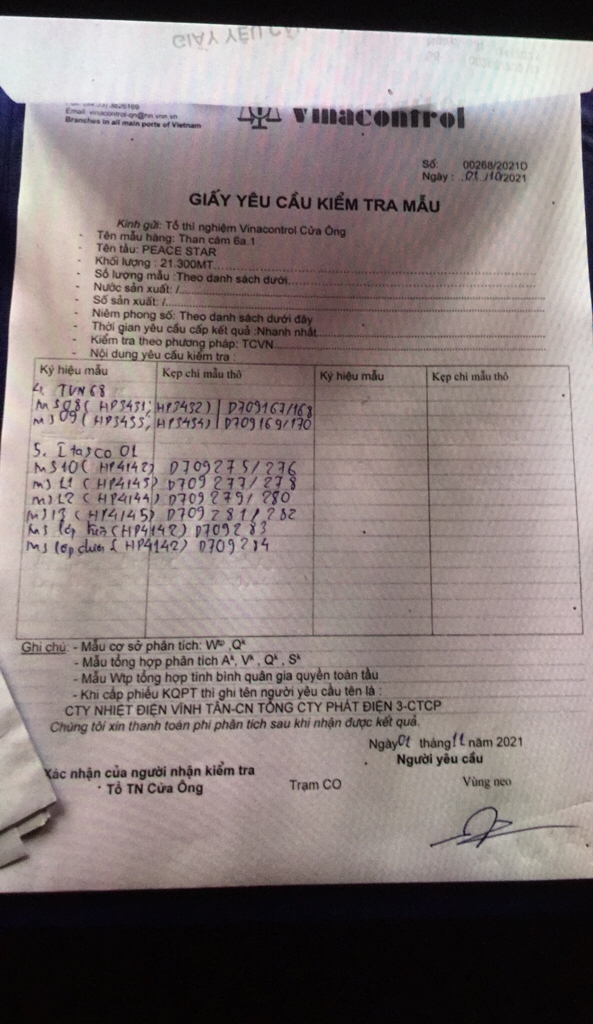 Email: vinacontrol-qn@hn.vnn.vn
Branches in all main ports of Vietnam
vinacontrol
Số: 00268/2021D
Ngày : 01/10/2021
GIẤY YÊU CẦU KIỂM TRA MẪU
Kính gửi: Tổ thí nghiệm Vinacontrol Cửa Ông
- Tên mẫu hàng: Than cám 6a.1
- Tên tàu: PEACE STAR
- Khối lượng : 21.300MT
- Số lượng mẫu :Theo danh sách dưới
- Nước sản xuất: /
- Số sản xuất: /
- Niêm phong số: Theo danh sách dưới đây
- Thời gian yêu cầu cấp kết quả :Nhanh nhất
- Kiểm tra theo phương pháp: TCVN
- Nội dung yêu cầu kiểm tra :
Ký hiệu mẫu Kẹp chì mẫu thô Ký hiệu mẫu Kẹp chì mẫu thô
4. TVN 68
MS 08 ( HP3431; HP3432) | D709167/168
MS 09 ( HP3433; HP3434) | D709169/170
5. Itasco 01
MS 10 ( HP4142) D709275/276
MS 11 ( HP4143) D709277/278
MS 12 ( HP4144) D709279/280
MS 13 ( HP4145) D709281/282
MS lớp trên (HP4142) D709283
MS lớp dưới (HP4142) D709284
Ghi chú: - Mẫu cơ sở phân tích: Wtp ,Qk
- Mẫu tổng hợp phân tích Ak, Vk , Qk , Sk
- Mẫu Wtp tổng hợp tính bình quân gia quyền toàn tàu
- Khi cấp phiếu KQPT thì ghi tên người yêu cầu tên là :
CTY NHIỆT ĐIỆN VĨNH TÂN-CN TỔNG CTY PHÁT ĐIỆN 3-CTCP
Chúng tôi xin thanh toán phí phân tích sau khi nhận được kết quả.
Ngày 01 tháng 11 năm 2021
Người yêu cầu
Xác nhận của người nhận kiểm tra
Tổ TN Cửa Ông Trạm CO Vùng neo